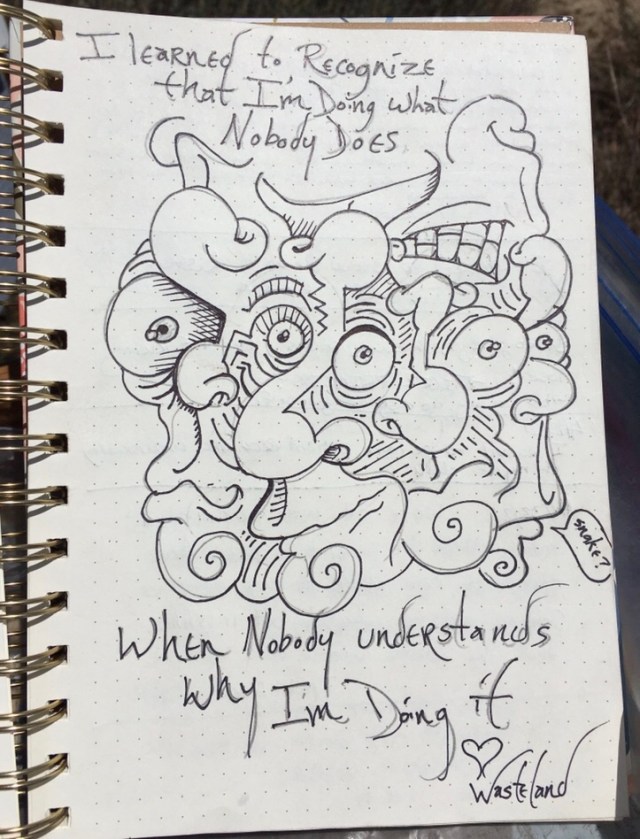 I learned to Recognize
that I'm Doing what
Nobody Does
snake?
When Nobody understands
Why I'm Doing it
Wasteland